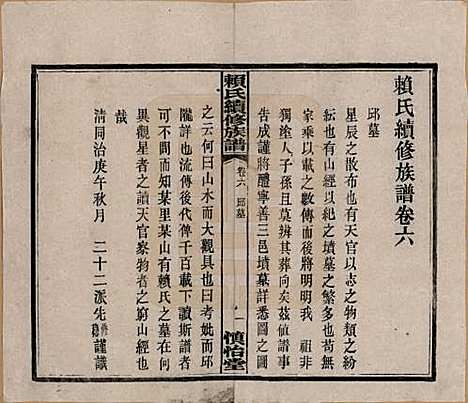 賴氏續修族譜卷六
邱墓
星辰之散布也有天官以志之物類之紛
紜也有山經以紀之墳墓之繁多也苟無
家乘以載之數傳而後將明明我　祖非
獨塗人子孫且莫辨其葬向矣茲値譜事
告成謹將醴寧善三邑墳墓詳悉圖之圖
賴氏續修族譜
卷六　邱墓
一
慎怡堂
之云何曰山水而大觀具也曰考妣而邱
隴詳也流傳後代俾千百載下讀斯譜者
可不問而知某里某山有賴氏之墓在何
異觀星者之讀天官察物者之窮山經也
哉
清同治庚午秋月　二十二派先謹識